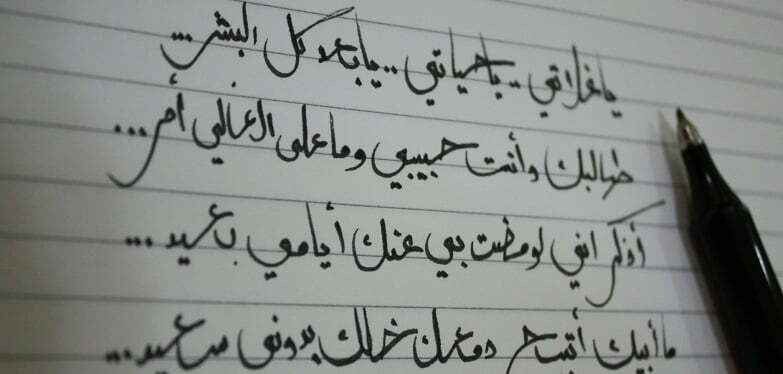 ياغلاتي .. ياحياتي .. يابعد كل البشر ...
طالبك وأنت حبيبي وماعلى الغالي أمر ...
أذكر اني لو مضت بي عنك أيامي بعيد ...
ما أبيك أتيح دمعك خلك بدوني سعيد ...